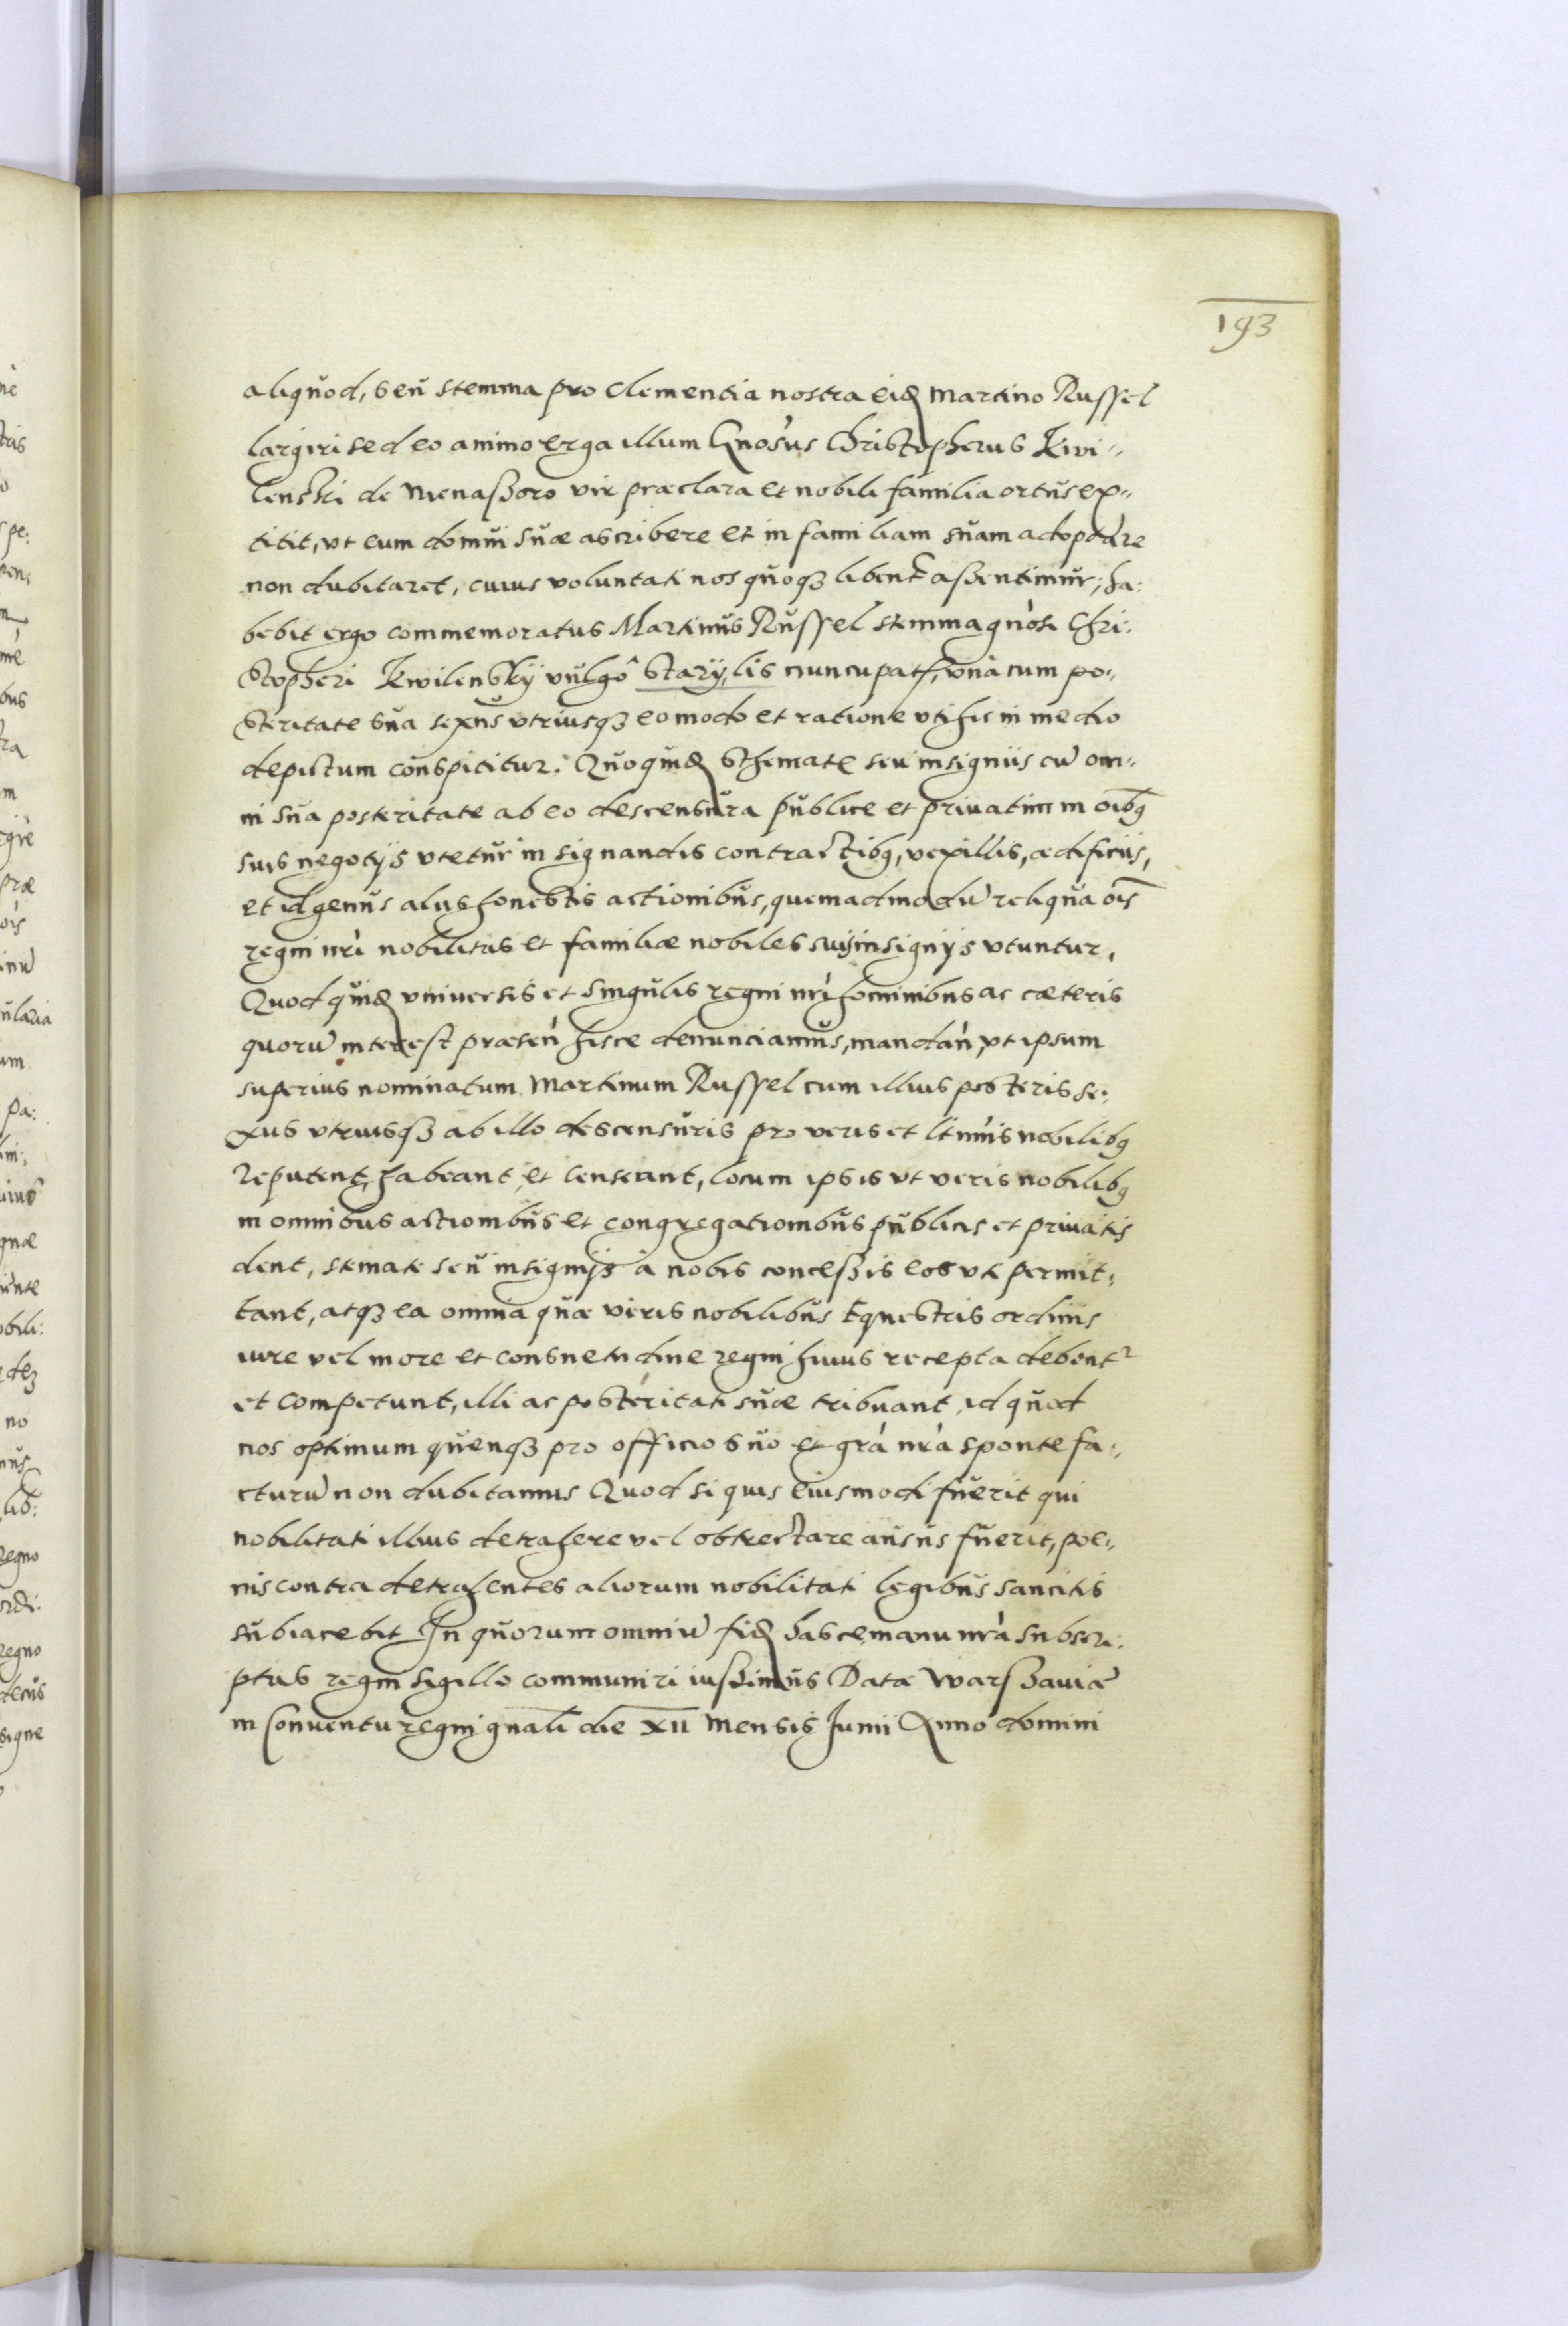 193
aliquod, seu stemma pro Clementia nostra eid Martino Russel
largiri sed eo animo erga illum Gnosus Christopherus Kwi-
lenski de vir præclara et nobili familia ortus ex-
titit, vt eum domui suæ ascribere et in familiam suam adoptare
non dubitaret, cuius voluntati nos quoqз libent aßentimur, ha:
bebit ergo commemoratus Martinus Russel stemma gnosi Chri:
stopheri Kwilensky vulgo Stary lis nuncupat, vna cum po-
steritate sua sexus vtriusqз eo modo et ratione vti his in medio
depictum conspicitur. Quo quid Schemate seu insigniis cu om-
ni sua posteritate ab eo descensura publice et priuatim in oibq
suis negotijs vtetur in signandis contractibq, vexillis, ædificiis,
et id genus aliis honestis actionibus, quemadmodu reliqua ois
regni nri nobilitas et familiæ nobiles suis insignijs vtuntur.
Quod quid vniuersis et singulis regni nri hominibus ac cæteris
quoru interest præsen hisce denunciamus, mandan, vt ipsum
superius nominatum Martinum Russel cum illius posteris se:
xus vtriusqз ab illo descensuris pro veris et ltimis nobilibq
Reputent, habeant et censeant, locum ipsis vt veris nobilibq
in omnibus actionibus et congregationibus publicis et priuatis
dent, stemate seu insignijs à nobis conceßis eos vti permit:
tant, atqз ea omnia quæ veris nobilibus Equestris ordinis
iure vel more et consuetudine regni huius recepta debent
et competunt, illi ac posteritati suæ tribuant id quod
nos optimum quenqз pro officio suo et gra nra sponte fa:
cturu non dubitamus Quod si quis eiusmodi fuerit qui
nobilitati illius detrahere vel obtrectare ausus fuerit, poe-
nis contra detrahentes aliorum nobilitati legibus sancitis
subiacebit In quorum omniu fid hasce manu nra subscri:
ptas regni sigillo communiri iussimus Datæ Warßauiæ
in Conuentu regni gnali die XII Mensis Junii Anno domini